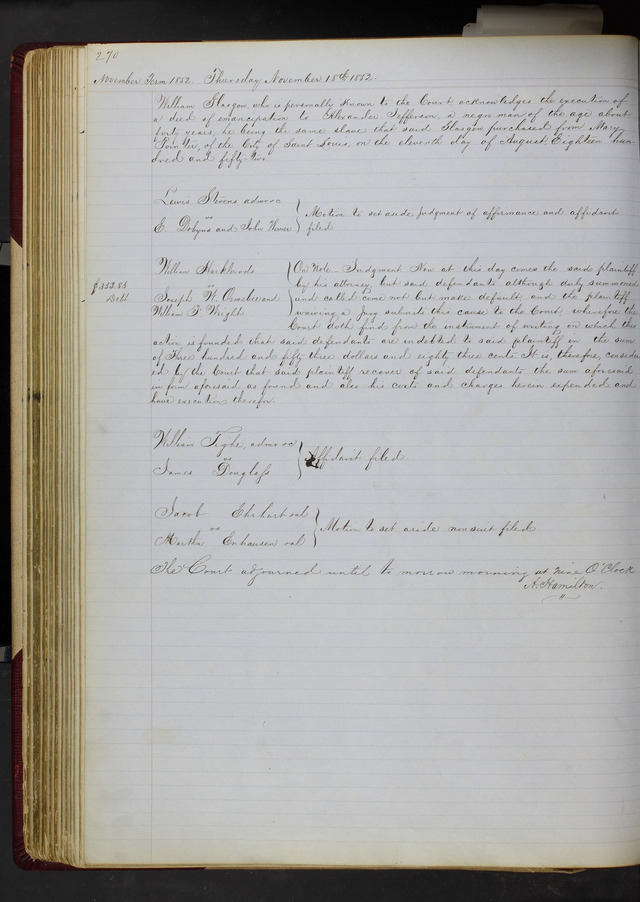 270
November Term 1852. Thursday November 18th 1852.
William Glasgow, who is personally known to the Court, acknowledges the execution of
a deed of emancipation to Alexander Jefferson, a negro man of the age about
forty years, he being the same slave that said Glasgow purchased from Mary
of the City of Saint Louis, on the eleventh day of August Eighteen hun-
dred and fifty two.
Lewis Stevens, admr &c
vs
E. Dobyns and John
Motion to set aside judgment of affirmance and affidavit
filed
William
vs
Joseph W. Ormsbee and
William F. Wright
$353.83
Debt
On Note. Judgment Now at this day comes the said plaintiff
by his attorney, but said defendants although duly summoned
and called come not but make default, and the plaintiff
waiving a Jury submits this cause to the Court, wherefore the
Court doth find from the instrument of writing on which this
action is founded that said defendants are indebted to said plaintiff in the sum
of Three hundred and fifty three dollars and eighty three cents. It is, therefore, consider
ed by the Court that said plaintiff recover of said defendants the sum aforesaid
in form aforesaid as found and also his costs and charges herein expended and
have execution therefor.
William Tighe, admr &c
vs
James Douglass
Affidavit filed.
Jacob Ehrhart et al
vs
Martha et al
Motion to set aside nonsuit filed
The Court adjourned until to morrow morning at Nine O'Clock
A. Hamilton.